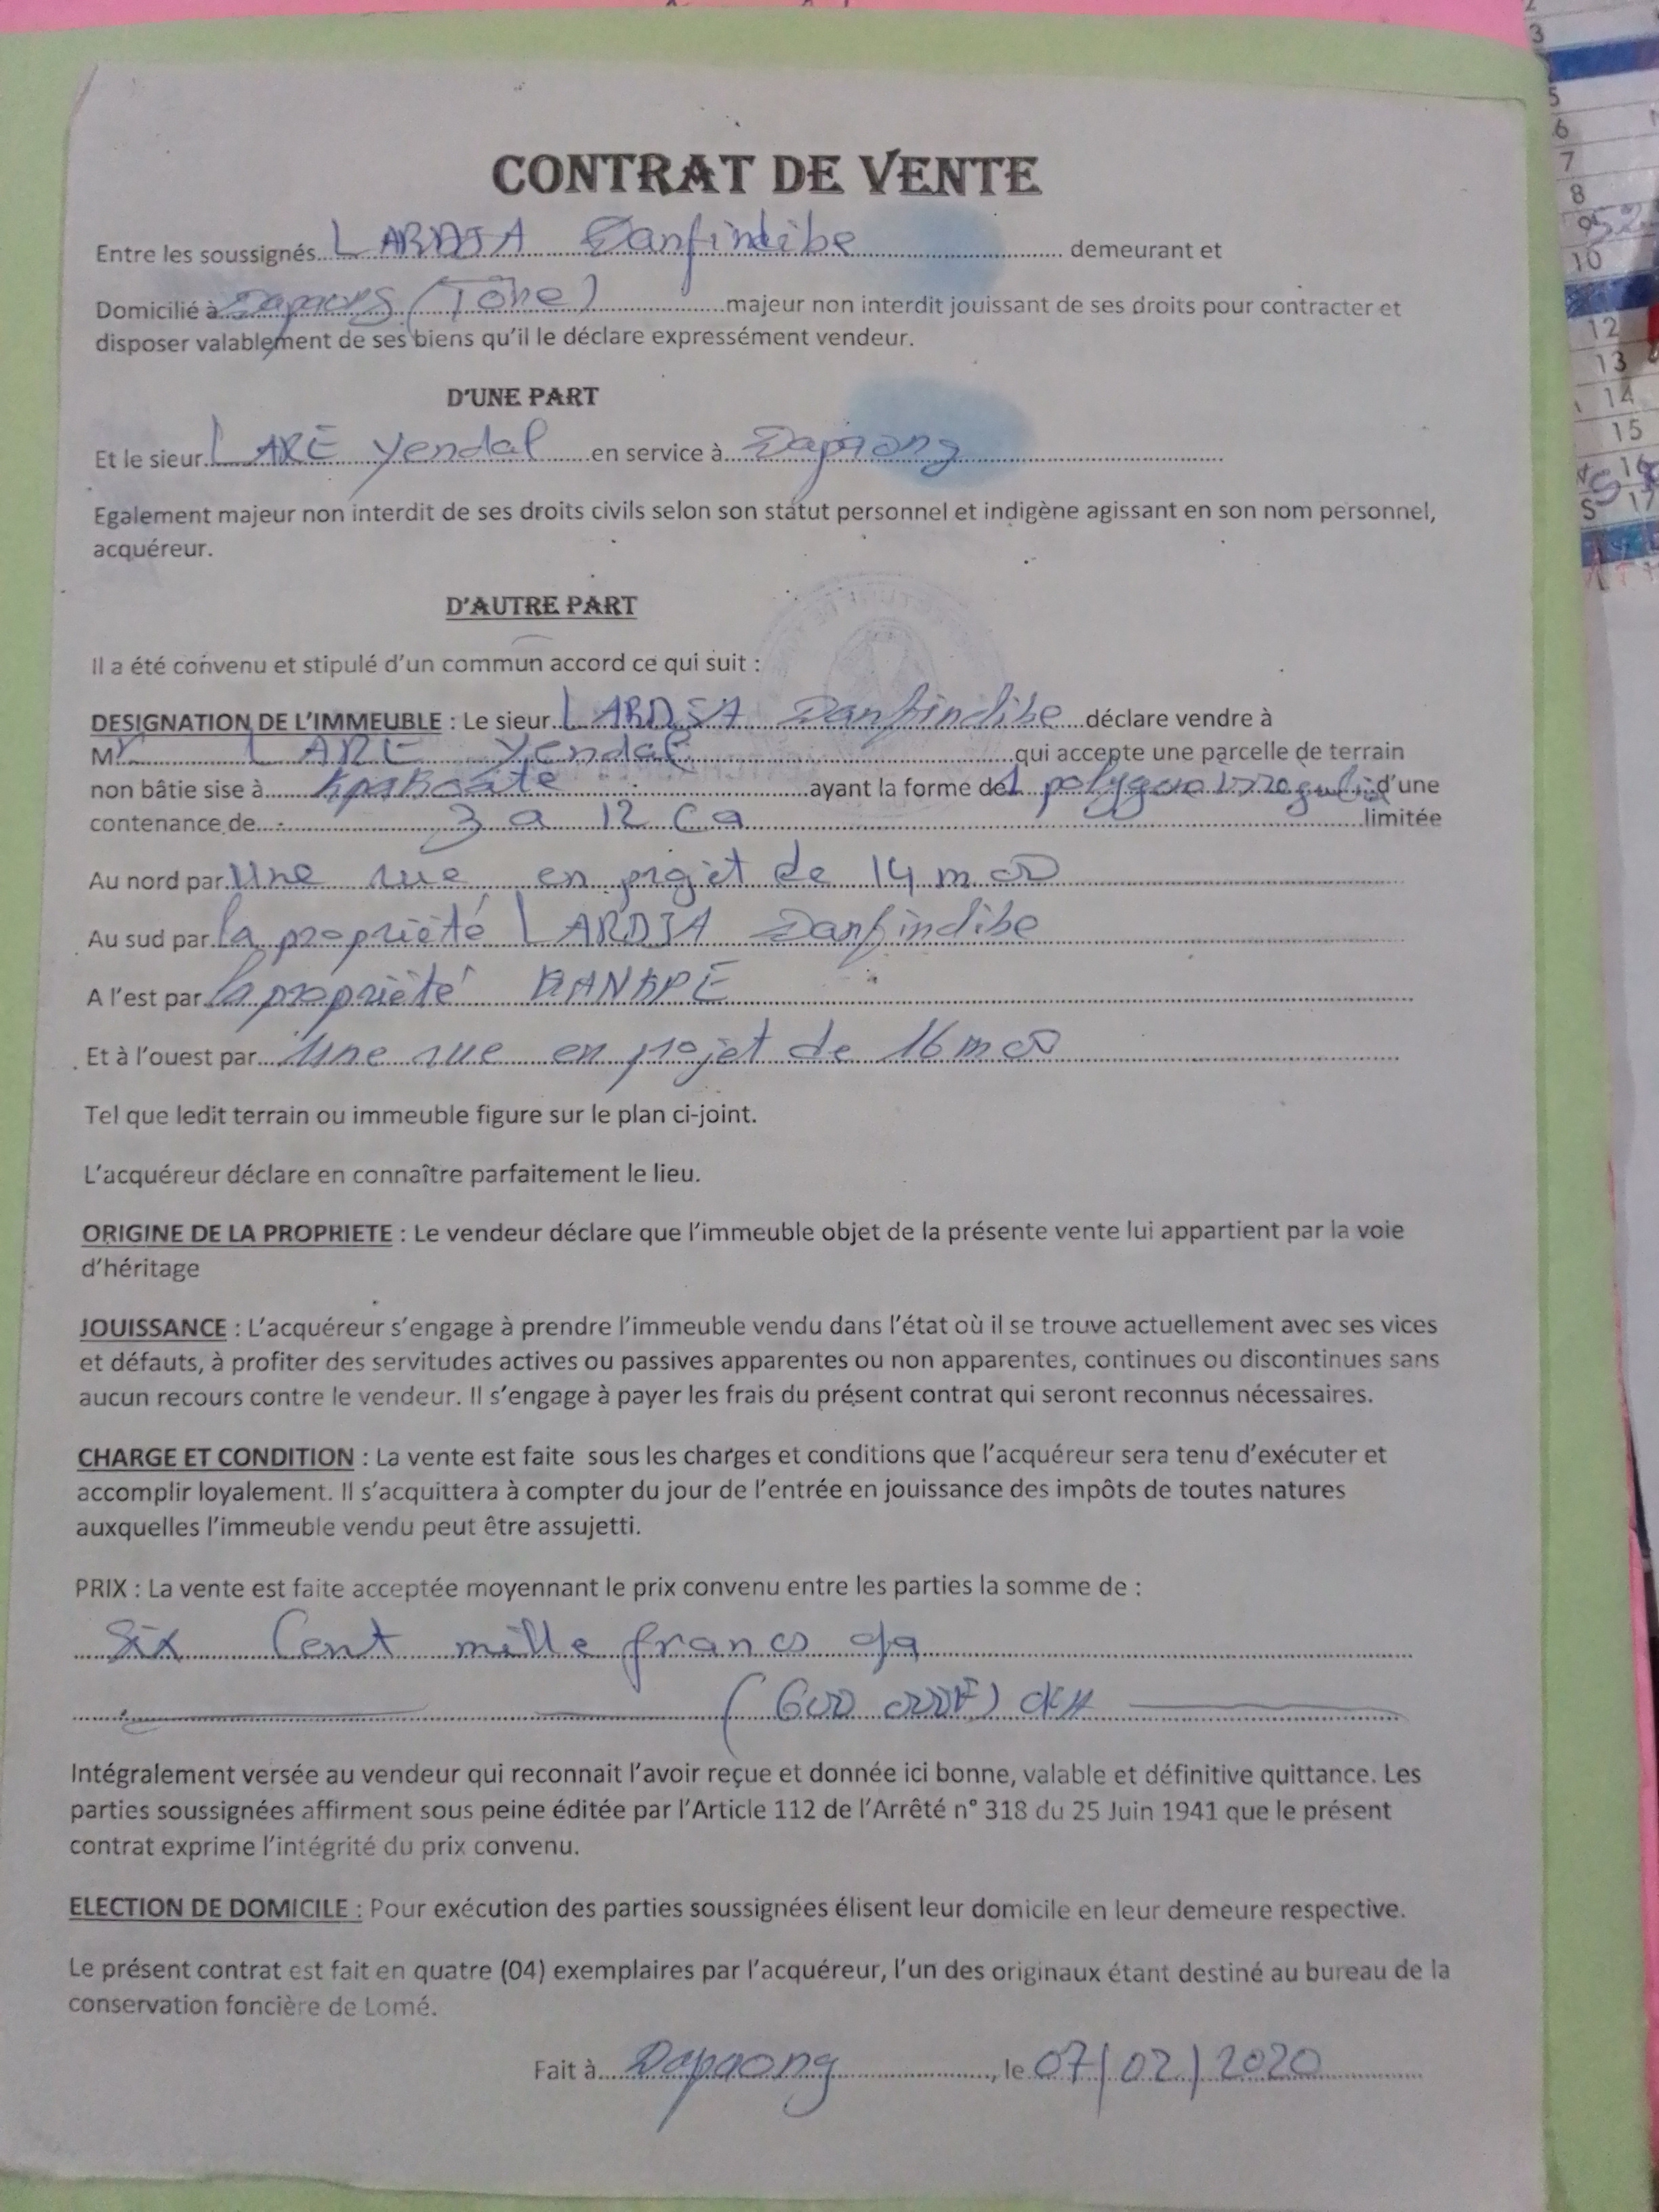 CONTRAT DE VENTE
Entre les soussignés LARDJA Danfindibe demeurant et
Domicilié à Dapaong (Tône) majeur non interdit jouissant de ses droits pour contracter et
disposer valablement de ses biens qu'il le déclare expressément vendeur.
D'UNE PART
Et le sieur LARE Yendal en service à Dapaong
Egalement majeur non interdit de ses droits civils selon son statut personnel et indigène agissant en son nom personnel,
acquéreur.
D'AUTRE PART
Il a été convenu et stipulé d'un commun accord ce qui suit :
DESIGNATION DE L'IMMEUBLE : Le sieur LARDJA Danfindibe déclare vendre à
Mr LARE Yendal qui accepte une parcelle de terrain
non bâtie sise à ayant la forme de 1 polygone irrégulier d'une
contenance de 3 a 12 Ca limitée
Au nord par Une rue en projet de 14 m
Au sud par la propriété LARDJA Danfindibe
A l'est par la propriété
Et à l'ouest par Une rue en projet de 16 m
Tel que ledit terrain ou immeuble figure sur le plan ci-joint.
L'acquéreur déclare en connaître parfaitement le lieu.
ORIGINE DE LA PROPRIETE : Le vendeur déclare que l'immeuble objet de la présente vente lui appartient par la voie
d'héritage
JOUISSANCE : L'acquéreur s'engage à prendre l'immeuble vendu dans l'état où il se trouve actuellement avec ses vices
et défauts, à profiter des servitudes actives ou passives apparentes ou non apparentes, continues ou discontinues sans
aucun recours contre le vendeur. Il s'engage à payer les frais du présent contrat qui seront reconnus nécessaires.
CHARGE ET CONDITION : La vente est faite sous les charges et conditions que l'acquéreur sera tenu d'exécuter et
accomplir loyalement. Il s'acquittera à compter du jour de l'entrée en jouissance des impôts de toutes natures
auxquelles l'immeuble vendu peut être assujetti.
PRIX : La vente est faite acceptée moyennant le prix convenu entre les parties la somme de :
Six Cent mille francs
(600 000F)
Intégralement versée au vendeur qui reconnait l'avoir reçue et donnée ici bonne, valable et définitive quittance. Les
parties soussignées affirment sous peine éditée par l'Article 112 de l'Arrêté n° 318 du 25 Juin 1941 que le présent
contrat exprime l'intégrité du prix convenu.
ELECTION DE DOMICILE : Pour exécution des parties soussignées élisent leur domicile en leur demeure respective.
Le présent contrat est fait en quatre (04) exemplaires par l'acquéreur, l'un des originaux étant destiné au bureau de la
conservation foncière de Lomé.
Fait à Dapaong, le 07/02/2020